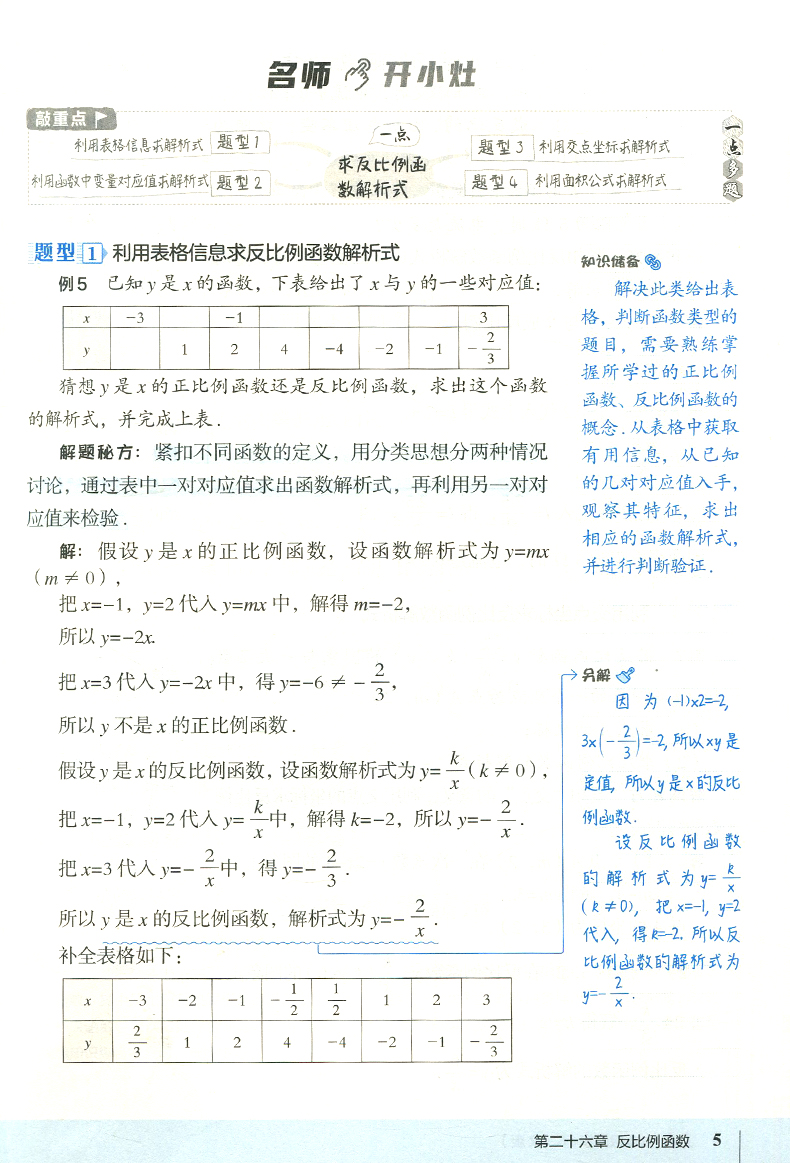 名师 开小灶
敲重点
利用表格信息求解析式 题型1
利用函数中变量对应值求解析式 题型2
一点
求反比例函
数解析式
题型3 利用交点坐标求解析式
题型4 利用面积公式求解析式
一点多题
题型1 利用表格信息求反比例函数解析式
例5 已知y是x的函数，下表给出了x与y的一些对应值：
x -3 -1 3
y 1 2 4 -4 -2 -1 -2/3
猜想y是x的正比例函数还是反比例函数，求出这个函数
的解析式，并完成上表.
解题秘方：紧扣不同函数的定义，用分类思想分两种情况
讨论，通过表中一对对应值求出函数解析式，再利用另一对对
应值来检验.
解：假设y是x的正比例函数，设函数解析式为y=mx
（m≠0），
把x=-1，y=2代入y=mx中，解得m=-2，
所以y=-2x.
把x=3代入y=-2x中，得y=-6≠-2/3，
所以y不是x的正比例函数.
假设y是x的反比例函数，设函数解析式为y=k/x（k≠0），
把x=-1，y=2代入y=k/x中，解得k=-2，所以y=-2/x.
把x=3代入y=-2/x中，得y=-2/3.
所以y是x的反比例函数，解析式为y=-2/x.
补全表格如下：
x -3 -2 -1 -1/2 1/2 1 2 3
y 2/3 1 2 4 -4 -2 -1 -2/3
知识储备
解决此类给出表
格，判断函数类型的
题目，需要熟练掌
握所学过的正比例
函数、反比例函数的
概念.从表格中获取
有用信息，从已知
的几对对应值入手，
观察其特征，求出
相应的函数解析式，
并进行判断验证.
另解
因为(-1)×2=-2，
3×(-2/3)=-2，所以xy是
定值，所以y是x的反比
例函数.
设反比例函数
的解析式为y=k/x
(k≠0)，把x=-1，y=2
代入，得k=-2.所以反
比例函数的解析式为
y=-2/x.
第二十六章 反比例函数 5